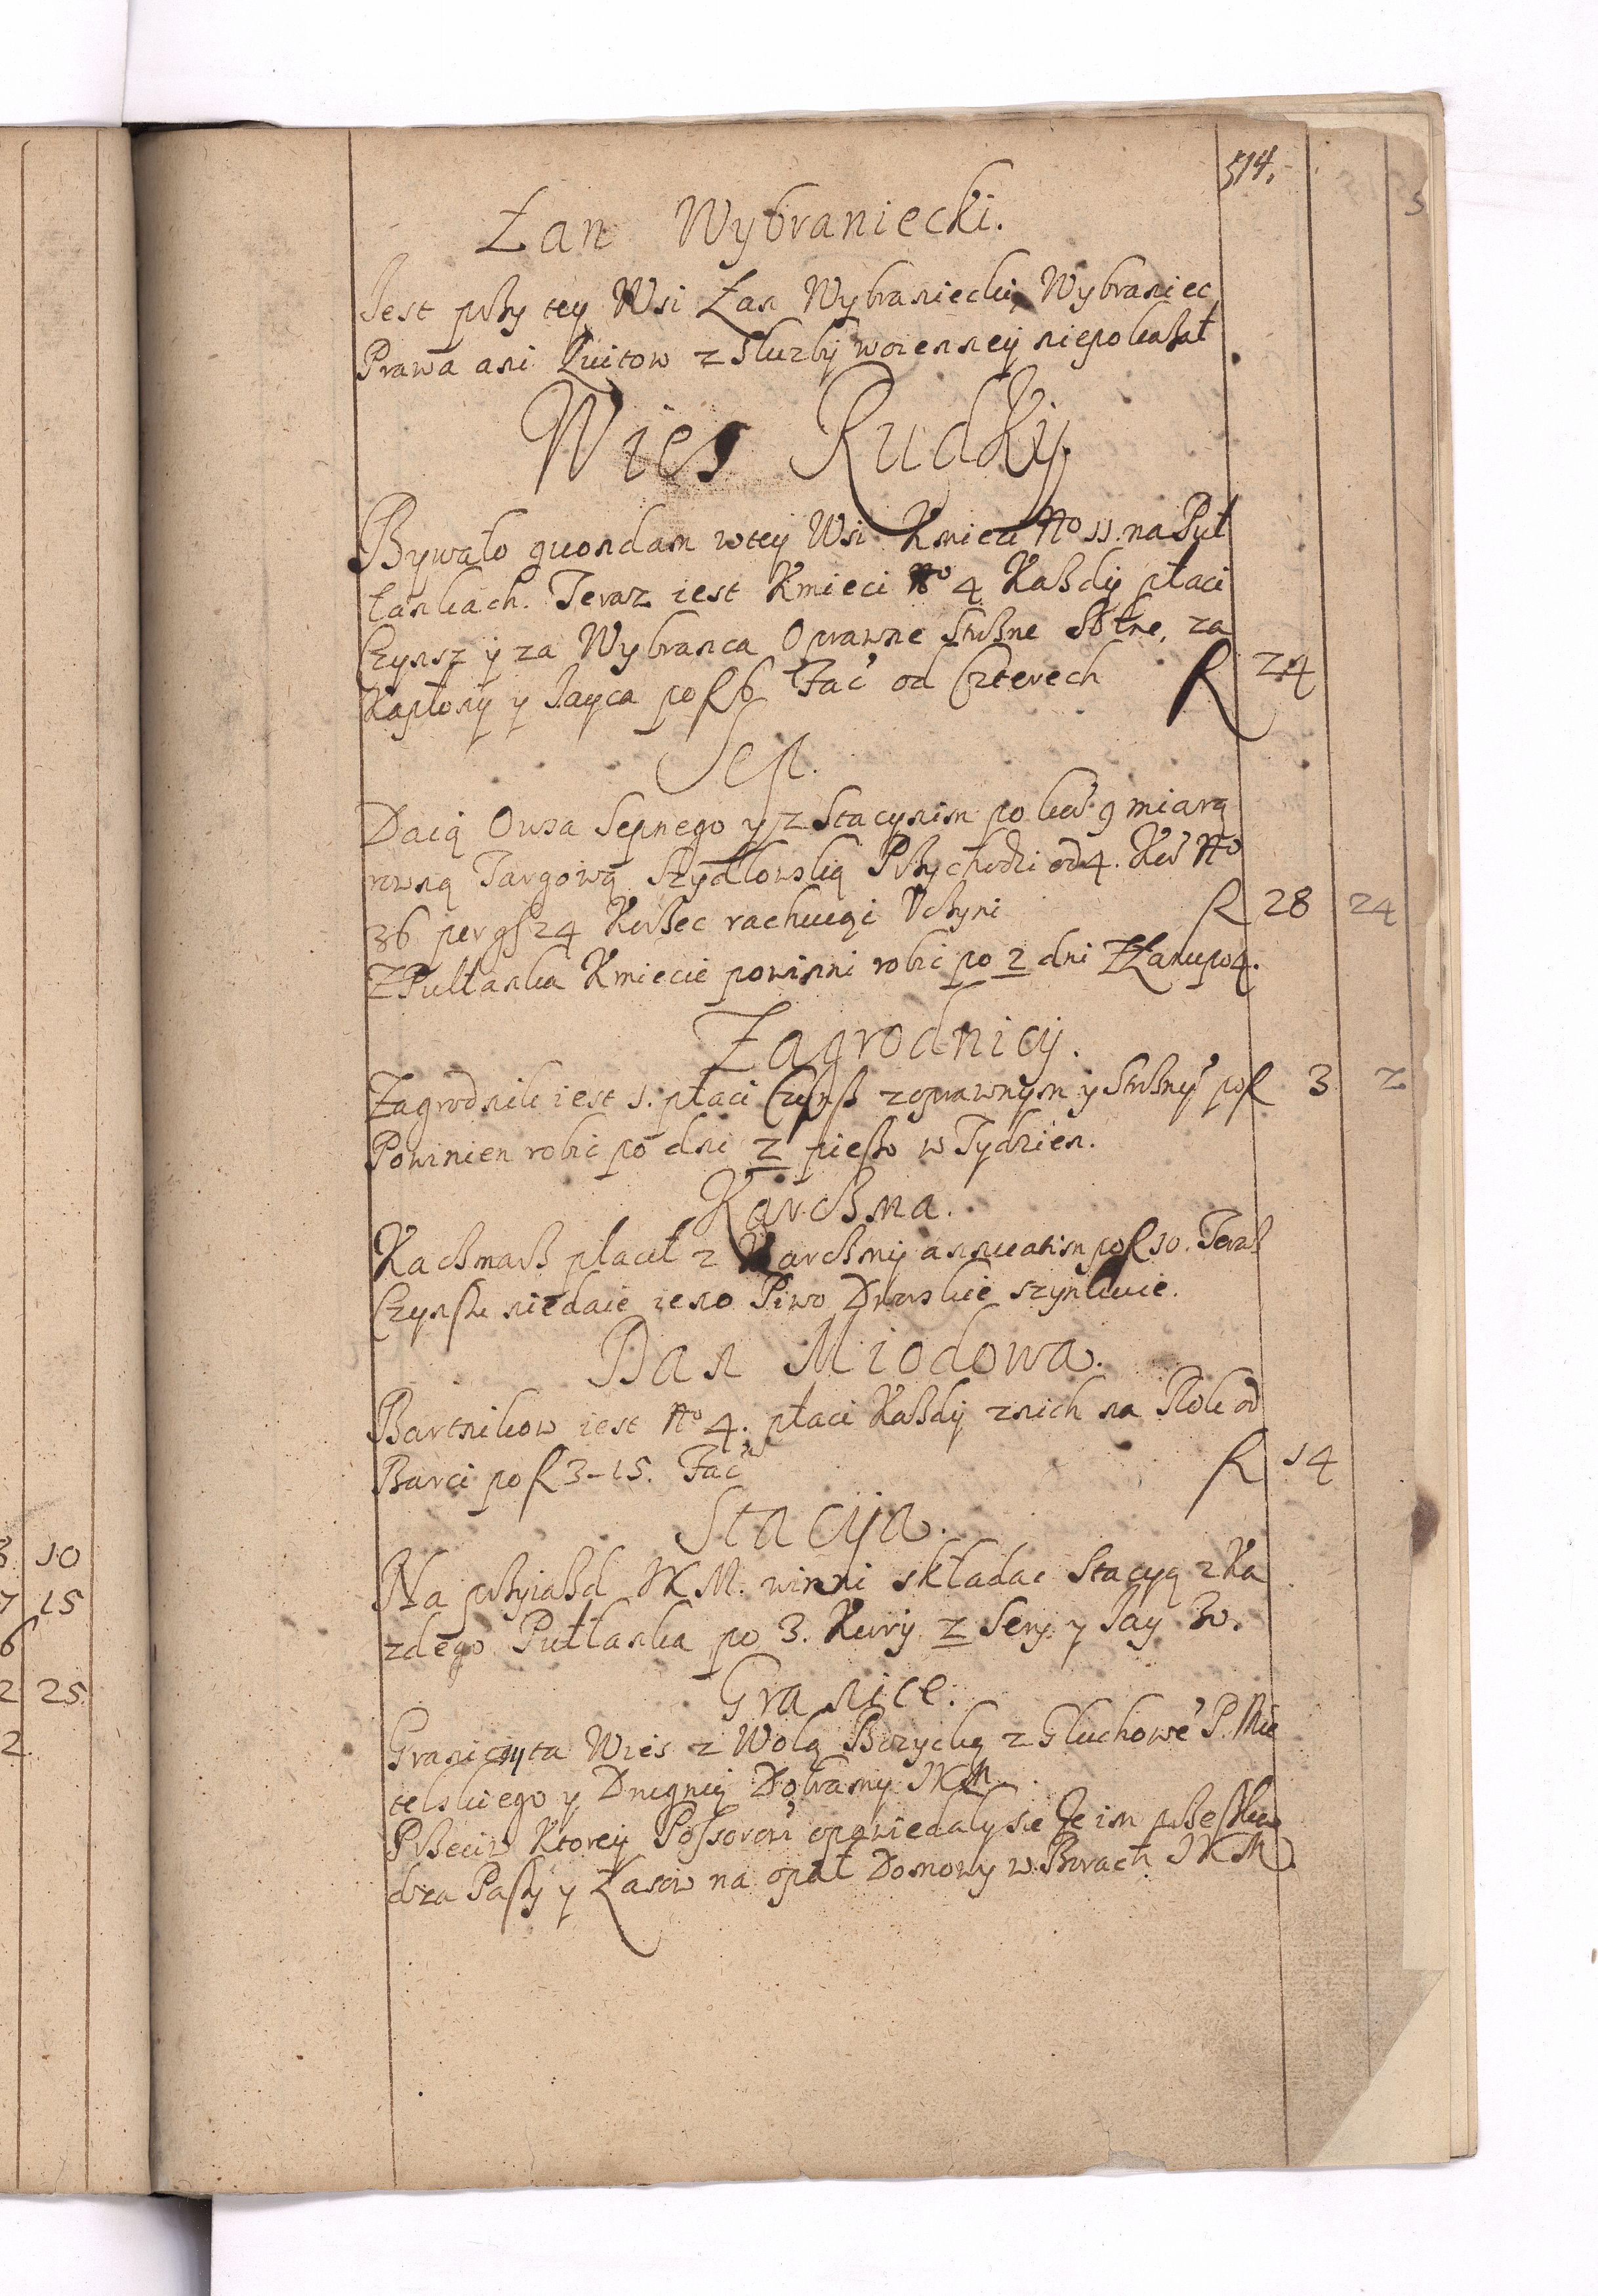 514.
Łan Wybraniecki.
Jest pßy tey Wsi Łan Wybraniecki, Wybraniec
Prawa ani Kwitow z Sluzby woienney niepokaßał
Wies Rudky.
Bywało quondam wtey Wsi Kmieci No 11. na Puł
łankach. Teraz iest Kmieci No 4 Kaßdy płaci
Czynsz y za Wybranca Oprawne Stroßne za
Kapłony y Jayca po fl 6 Fac od Czterech fl 24
Sep.
Daią Owsa Sepnego y z Stacynim po kor 9 miarą
rowną Targową Szydlowską Pßychodzi od 4. Kor No
36 per gr 24 Korßec rachuiąc Vcßyni fl 28 24
ZPułłanka Kmiecie powinni robic po 2 dni ZŁanu po 4.
Zagrodnicy.
Zagrodnik iest 1. płaci Czynß zoprawnym y Stroßny po fl 3 2
Powinien robic po dni 2 pießo w Tydzien.
Karcßma.
Kacßmarß płacił z Karcßmy annuatim po fl 10. Teraß
Czynßu niedaie ieno Piwo Dworskie szynkuie.
Dan Miodowa.
Bartnikow iest No 4. płaci Kaßdy znich na Rok od
Barci po fl 3-15. Fac fl 14
Stacyja.
Na pßyiaßd JKM. winni składac Stacyą z Ka
zdego Pułłanka po 3. Kury 2 Sery y Jay 30.
Granice.
Graniczy ta Wies z Wolą Bozycką z Gluchowe P. Mie
telskiego y Drugnią Dobramy JKM.
Pßeciw Ktorey Possorowi opowiedaly sie Ze im pßeßka
dza Paßy y Łasow na opał Domowy w Borach JKM.
3 10
7 15
6
2 25
2